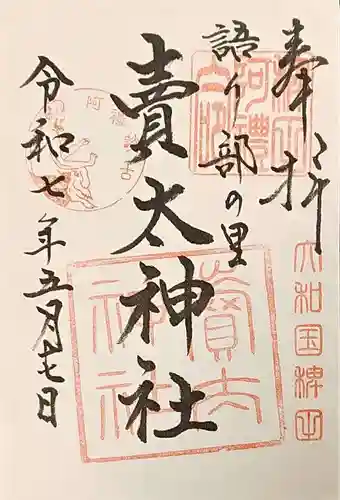 奉拝
語り部の里
賣太神社
令和七年五月十七日
大和国稗田
賣太神社
阿禮